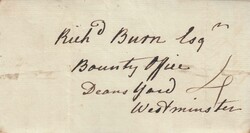 Rich^d Burn Esq^r
Bounty Office
Deans Yard
Westminster